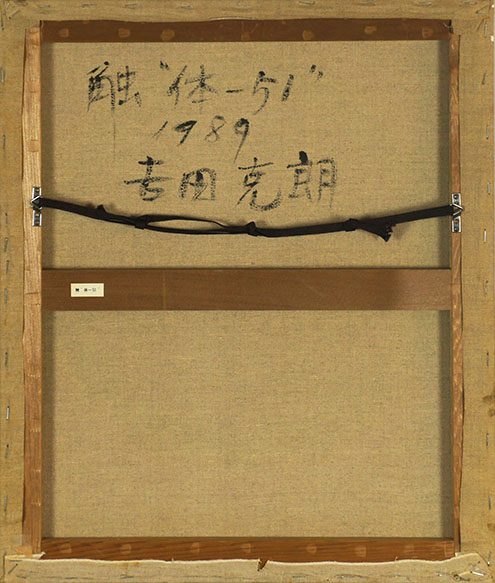 触 "体-51"
1989
吉田克朗
触 体-51